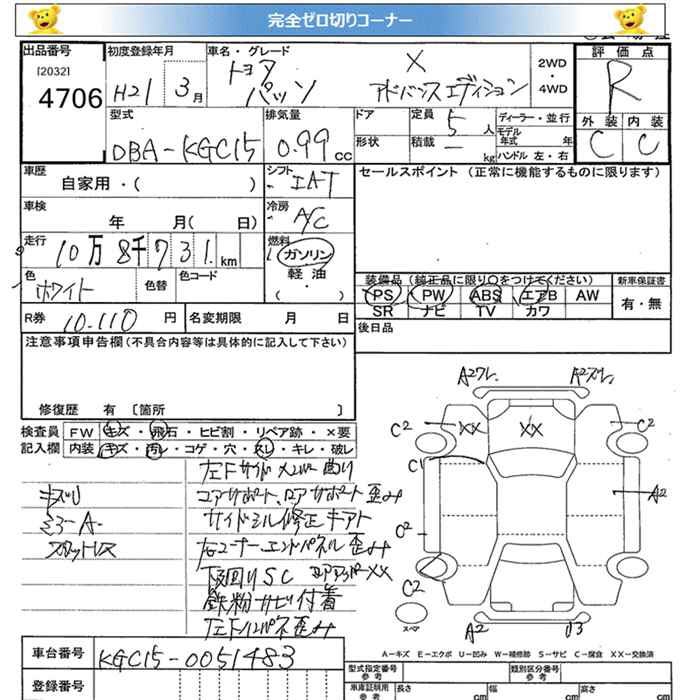 完全ゼロ切りコーナー
出品番号
[2032]
4706
初度登録年月
H21 3月
車名・グレード
トヨタ パッソ
X
アドバンスエディション
2WD
・
4WD
評価点
R
外装 内装
C C
型式
DBA-KGC15
排気量
0.99 cc
ドア
形状
定員 5 人
積載 ー kg
ディーラー・並行
モデル年式 年
ハンドル 左・右
車歴
自家用・( )
シフト
IAT
セールスポイント (正常に機能するものに限ります)
車検
年 月( 日)
冷房
A/C
走行
10万8千731.km
燃料
ガソリン
軽油
( )
色
ホワイト
色替
色コード
装備品 (純正品に限り〇をつけてください)
PS PW ABS エアB AW
SR ナビ TV カワ
新車保証書
有・無
R券 10.110 円
名変期限 月 日
後日品
注意事項申告欄 (不具合内容等は具体的に記入して下さい)
修復歴 有 [箇所 ]
検査員 FW キズ・飛石・ヒビ割・リペア跡・×要
記入欄 内装 キズ・汚レ・コゲ・穴・スレ・キレ・破レ
左Fサイドメンバー曲り
コアサポート、ロアサポート歪み
サイドシル修正キアト
右コーナーエンドパネル歪み
下回りSC
XX
鉄粉サビ付着
キズU
ミラーA-
A2ワレ
A2スリ
C2
XX
XX
C2
C1
A2
C2
C2
スペア
A2
U3
A-キズ E-エクボ U-凹み W-補修跡 S-サビ C-腐食 XX-交換済
車台番号 KGC15-0051483
登録番号
型式指定番号
参考
類別区分番号
参考
車庫証明用
参考
長さ cm
幅 cm
高さ cm